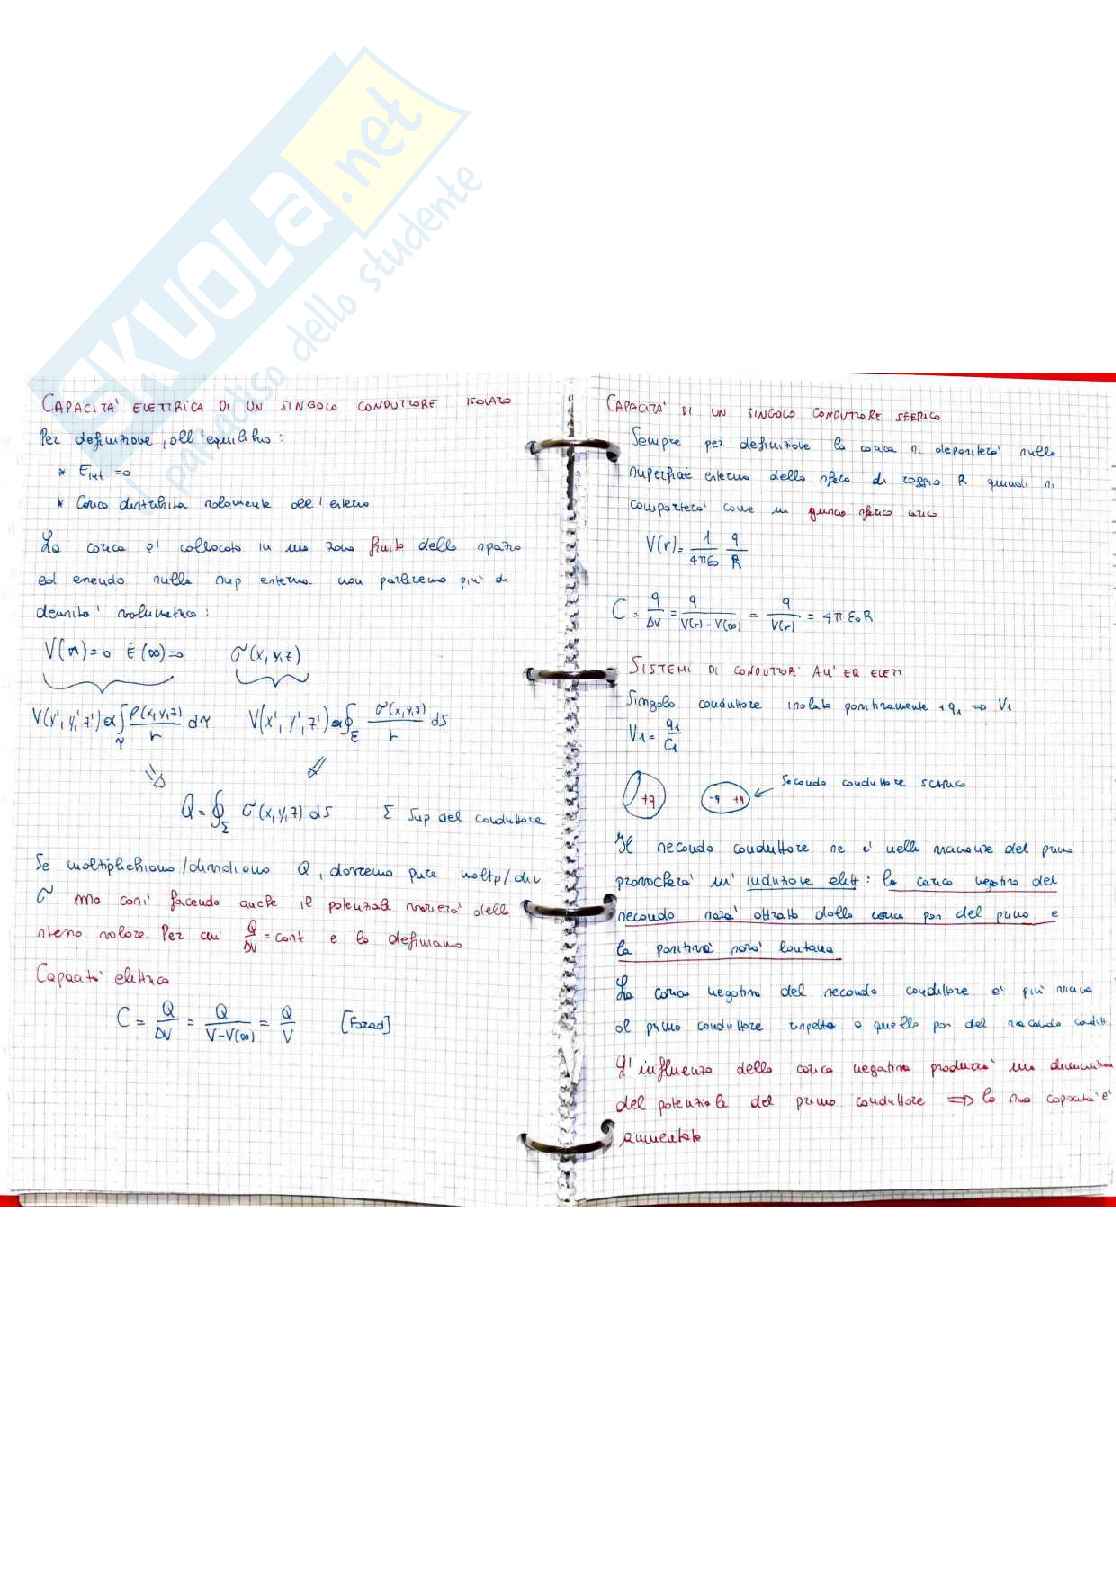 SKUOLA.net
paradiso dello studente
CAPACITA' ELETTRICA DI UN SINGOLO CONDUTTORE ISOLATO
Per definizione, all'equilibrio:
* E int =0
* Carica distribuita solamente all'esterno
La carica e' collocata in una zona finita dello spazio
ed essendo sulla sup esterna non parleremo piu' di
densita' volumetrica:
V(∞)=0 E(∞)=0 σ(x,y,z)
V(x',y',z')∝∫τ ρ(x,y,z)/r dτ V(x',y',z')∝∮Σ σ(x,y,z)/r dS
Q=∮Σ σ(x,y,z) dS Σ Sup del conduttore
Se moltiplichiamo/dividiamo Q, dovremo pure moltp/div
σ ma cosi' facendo anche il potenziale variera' dello
stesso valore. Per cui Q/ΔV=cost e la definiamo
Capacita' elettrica
C = Q/ΔV = Q/V-V(∞) = Q/V [Farad]
CAPACITA' DI UN SINGOLO CONDUTTORE SFERICO
Sempre per definizione la carica si depositera' sulla
superficie esterna della sfera di raggio R quindi si
comportera' come un guscio sferico carico
V(r)= 1/4πε₀ q/R
C = q/ΔV = q/V(r)-V(∞) = q/V(r) = 4πε₀R
SISTEMI DI CONDUTTORI ALL'EQ ELETT
Singolo conduttore isolato positivamente +q₁ → V₁
V₁= q₁/C₁
+q -q +q Secondo conduttore SCARICO
Il secondo conduttore se e' nelle vicinanze del primo
provochera' un'induzione elett: la carica negativa del
secondo sara' attratta dalla carica pos del primo e
la positiva sara' lontana
La carica negativa del secondo conduttore e' piu' vicina
al primo conduttore rispetto a quella pos del secondo condutt
L'influenza della carica negativa produrra' una diminuzione
del potenziale del primo conduttore ⇒ la sua capacita' e'
aumentata